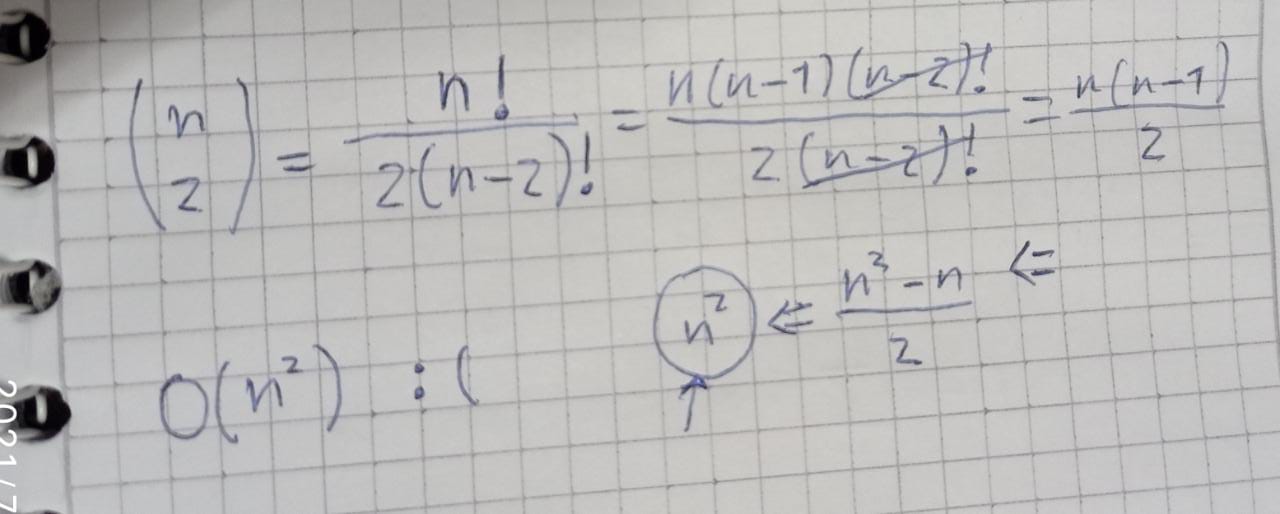 (n 2) = n! / 2(n-2)! = n(n-1)(n-2)! / 2(n-2)! = n(n-1) / 2
n² ⇐ n²-n / 2 ⇐
O(n²) :(
↑
2021/7